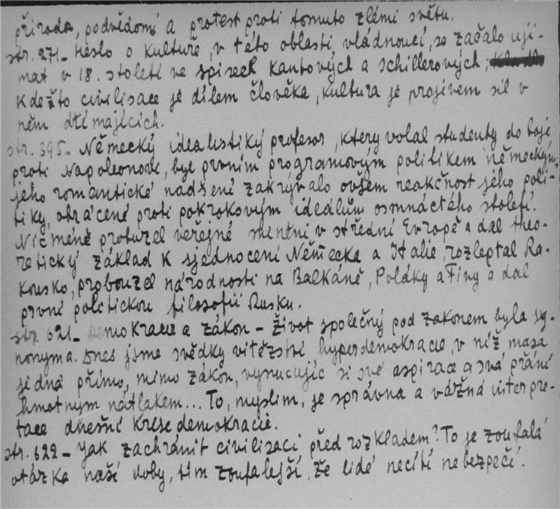 příroda, podvědomí a protest proti tomuto zlému světu.
str. 271 - Heslo o kultuře, v této oblasti vládnoucí, se začalo ují-
mat v 18. století ve spisech Kantových a Schillerových;
Kdežto civilisace je dílem člověka, kultura je projevem sil v
něm dřímajících.
str. 395. - Německý idealistický profesor, který volal studenty do boje
proti Napoleonovi, byl prvním programovým politikem německým,
jeho romantické nadšení zakrývalo ovšem reakčnost jeho poli-
tiky, obrácené proti pokrokovým ideálům osmnáctého století.
Nicméně probudil veřejné mínění v střední Evropě a dal theo-
retický základ k sjednocení Německa a Italie, rozleptal Ra-
kousko, probouzel národnosti na Balkáně, Poláky a Finy a dal
první politickou filosofii Rusku.
str. 621. - Demokracie a zákon - život společný pod zákonem byla sy-
nonyma. Dnes jsme svědky vítězství hyperdemokracie, v níž masa
jedná přímo, mimo zákon, vynucujíc si své aspirace a svá přání
hmotným nátlakem... To, myslím, je správná a vážná interpre-
tace dnešní krise demokracie.
str. 622 - Jak zachránit civilizaci před rozkladem? To je zoufalá
otázka naší doby, tím zoufalejší, že lidé necítí nebezpečí.